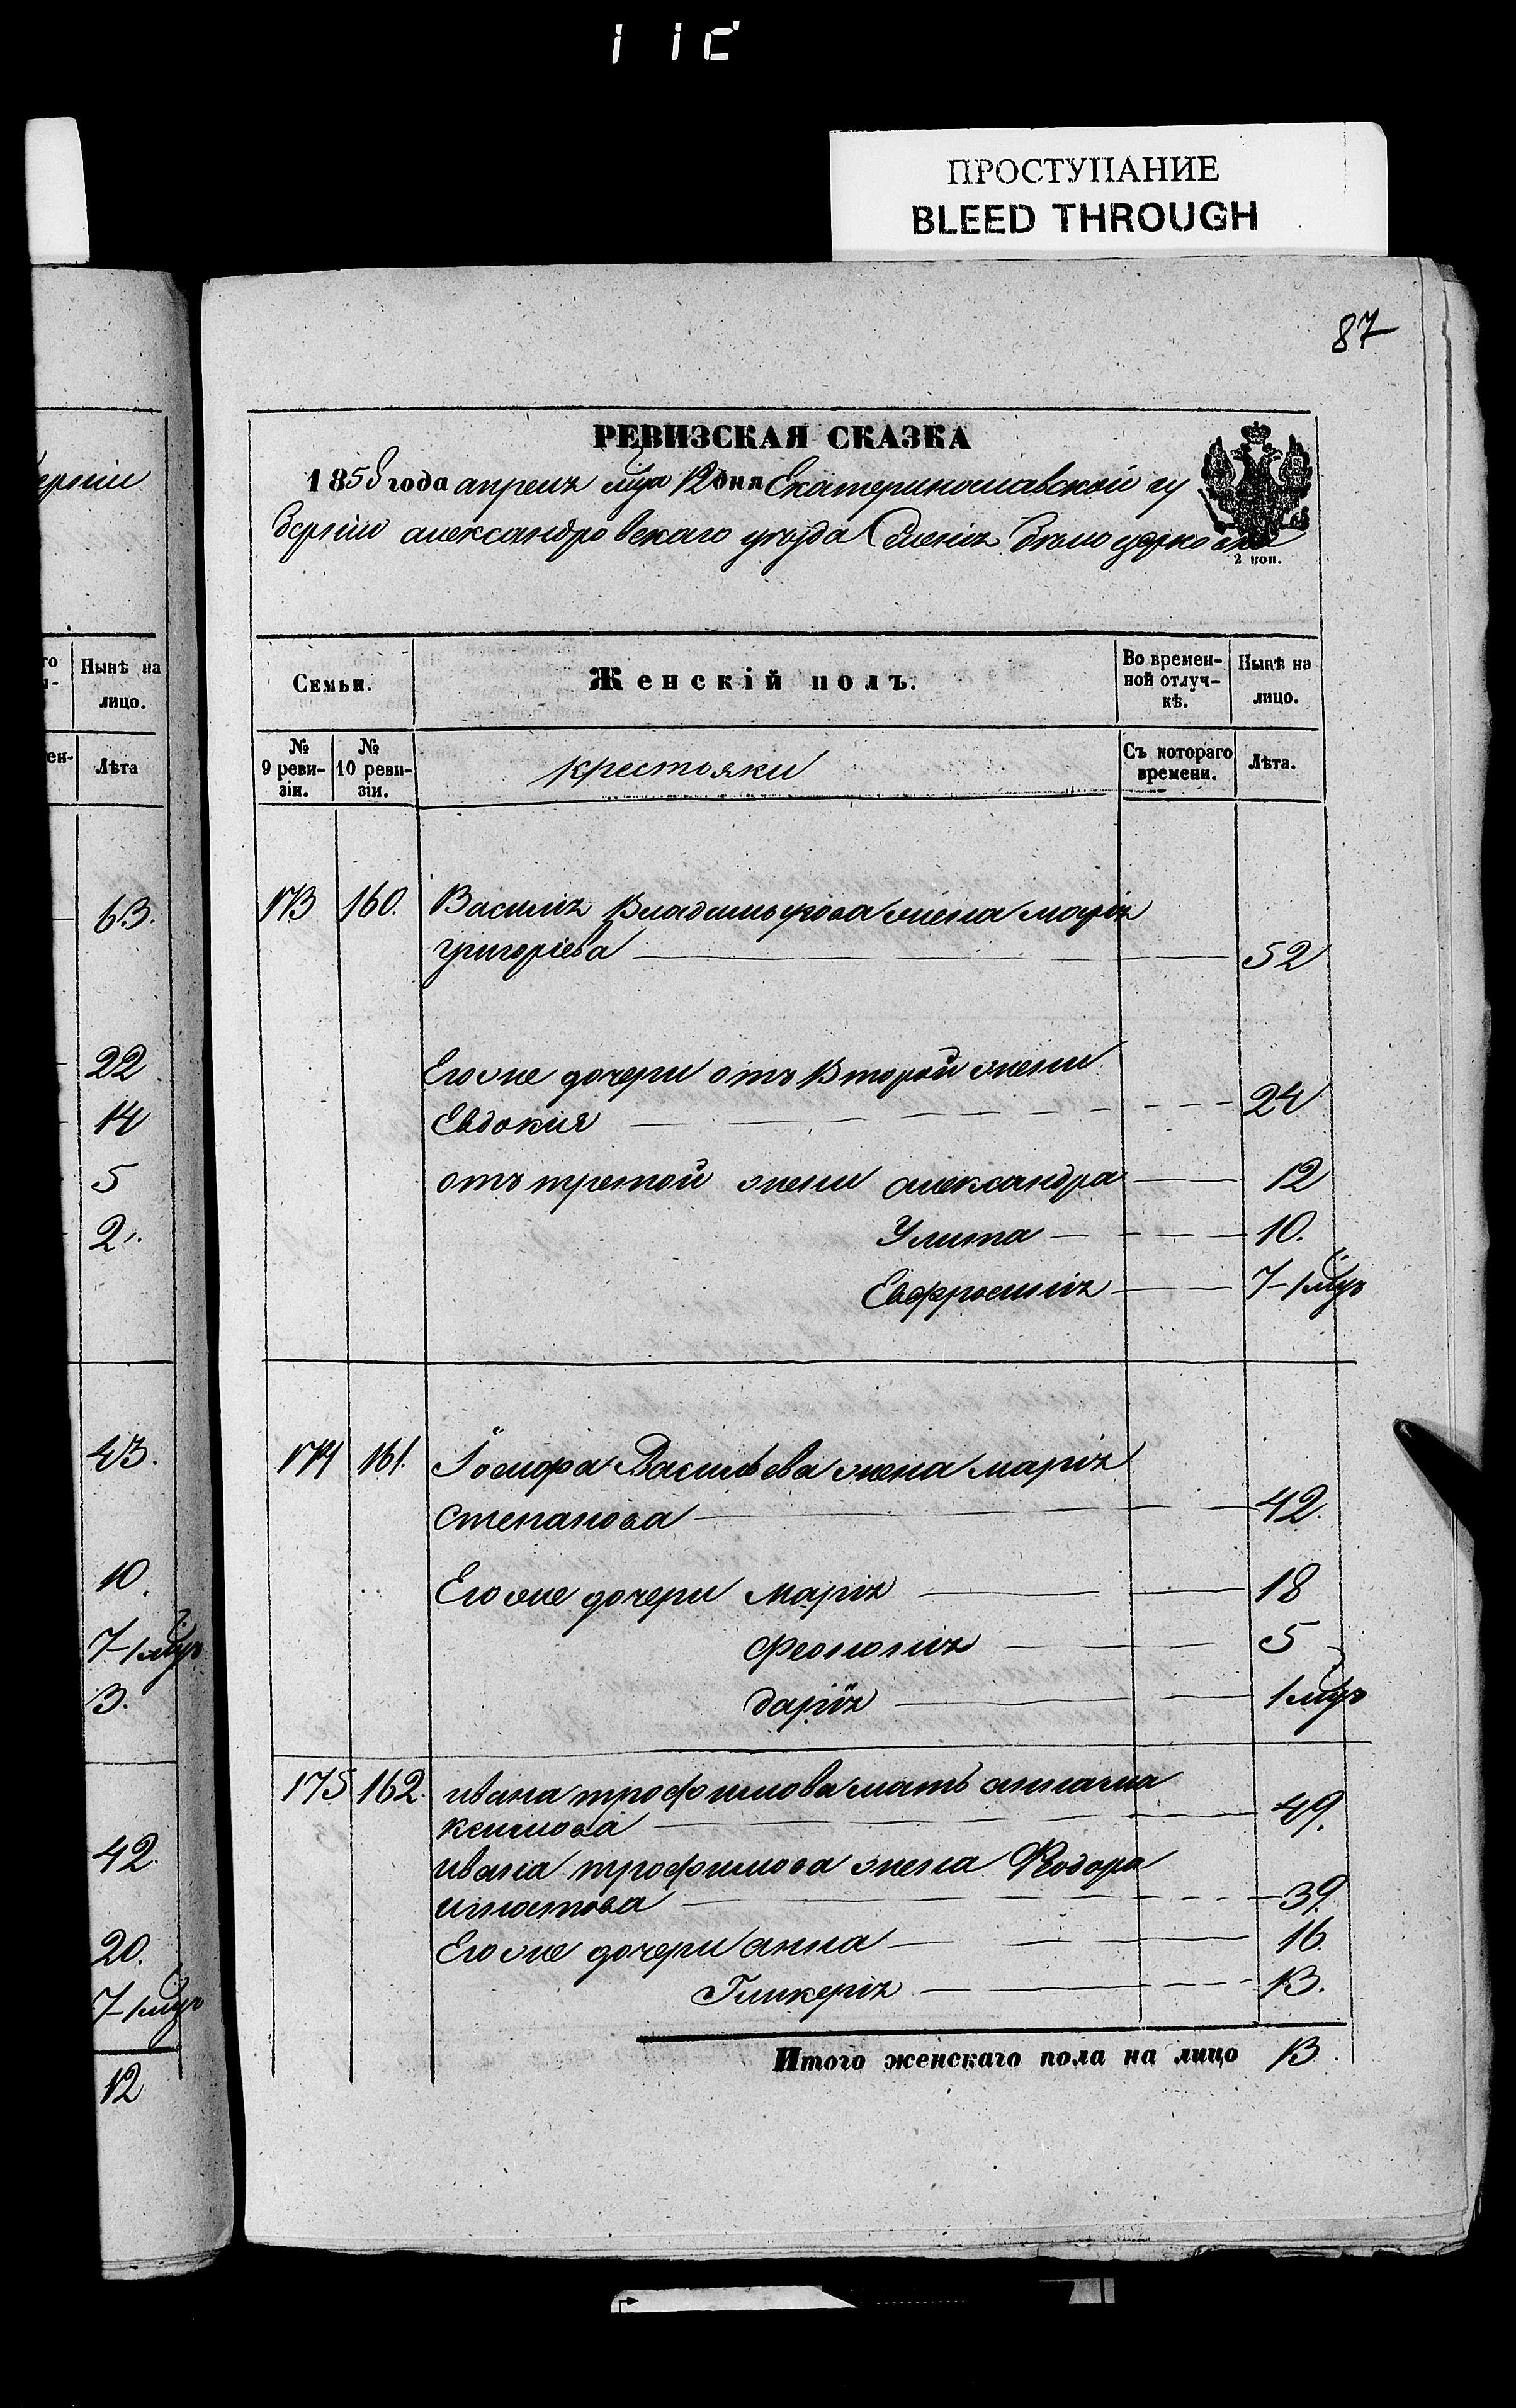 ПРОСТУПАНИЕ
BLEED THROUGH
87
РЕВИЗСКАЯ СКАЗКА
1858 года апреля мца 12 дня Екатеринославской гу
берніи александровскаго уезда Селенія Бѣлоцерковки
2 коп.
Семьи.
Женскій полъ.
Во времен-
ной отлуч-
кѣ.
Нынѣ на
лицо.
№
9 реви-
зіи.
№
10 реви-
зіи.
крестьянки
Съ котораго
времени.
Лѣта.
173 160. Василія Владимырова жена марія
григоріева 52
Его же дочери отъ Второй жены
Евдокия 24
отъ третой жены александра 12
Улита 10.
Евфросинія 7-1/мцъ
174 161. Іосифа Васильева жена марія
степанова 42.
Его же дочери марія 18
феононія 5
дарія 1 мцъ
175 162. ивана трофимова мать анна ма
ксимова 49.
ивана трофимова жена Феодора
игнатова 39.
Его же дочери анна 16.
Гликерія 13.
Итого женскаго пола на лицо 13.
берніи
Нынѣ на
лицо.
Лѣта
63.
22
14
5
2.
43.
10.
7-1/мцъ
3.
42.
20.
7-1/мцъ
12